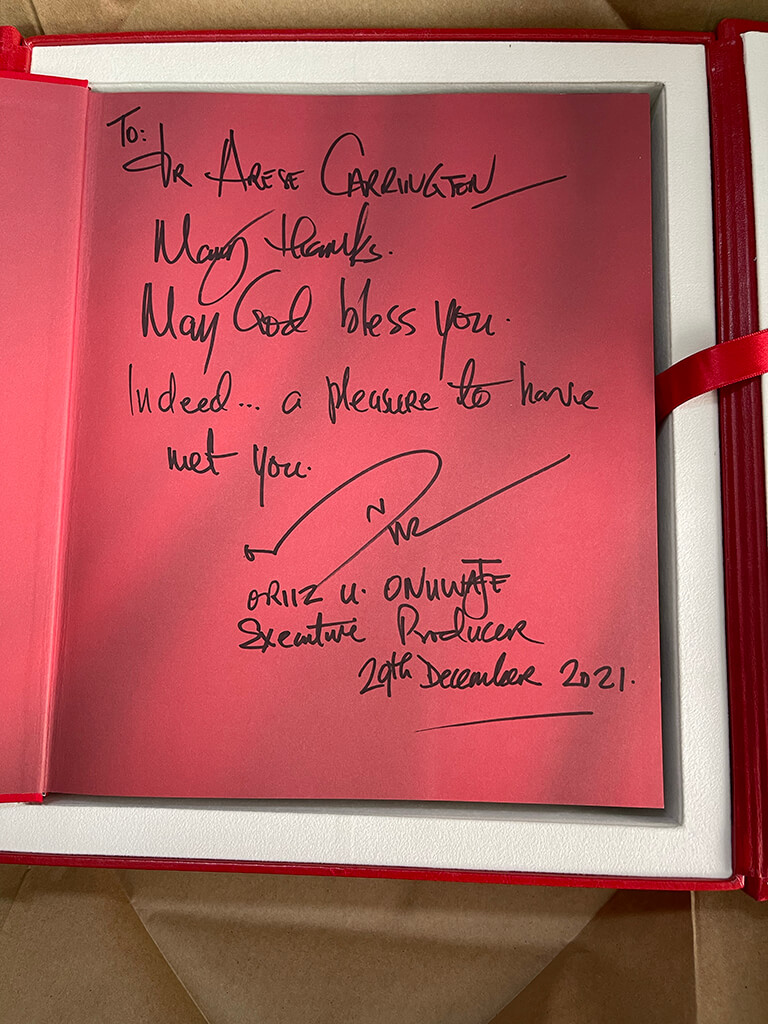 To:
Dr Arese Carrington
Many thanks.
May God bless you.
Indeed... a pleasure to have
met you.
ORIIZ U. ONUWAJE
Executive Producer
29th December 2021.